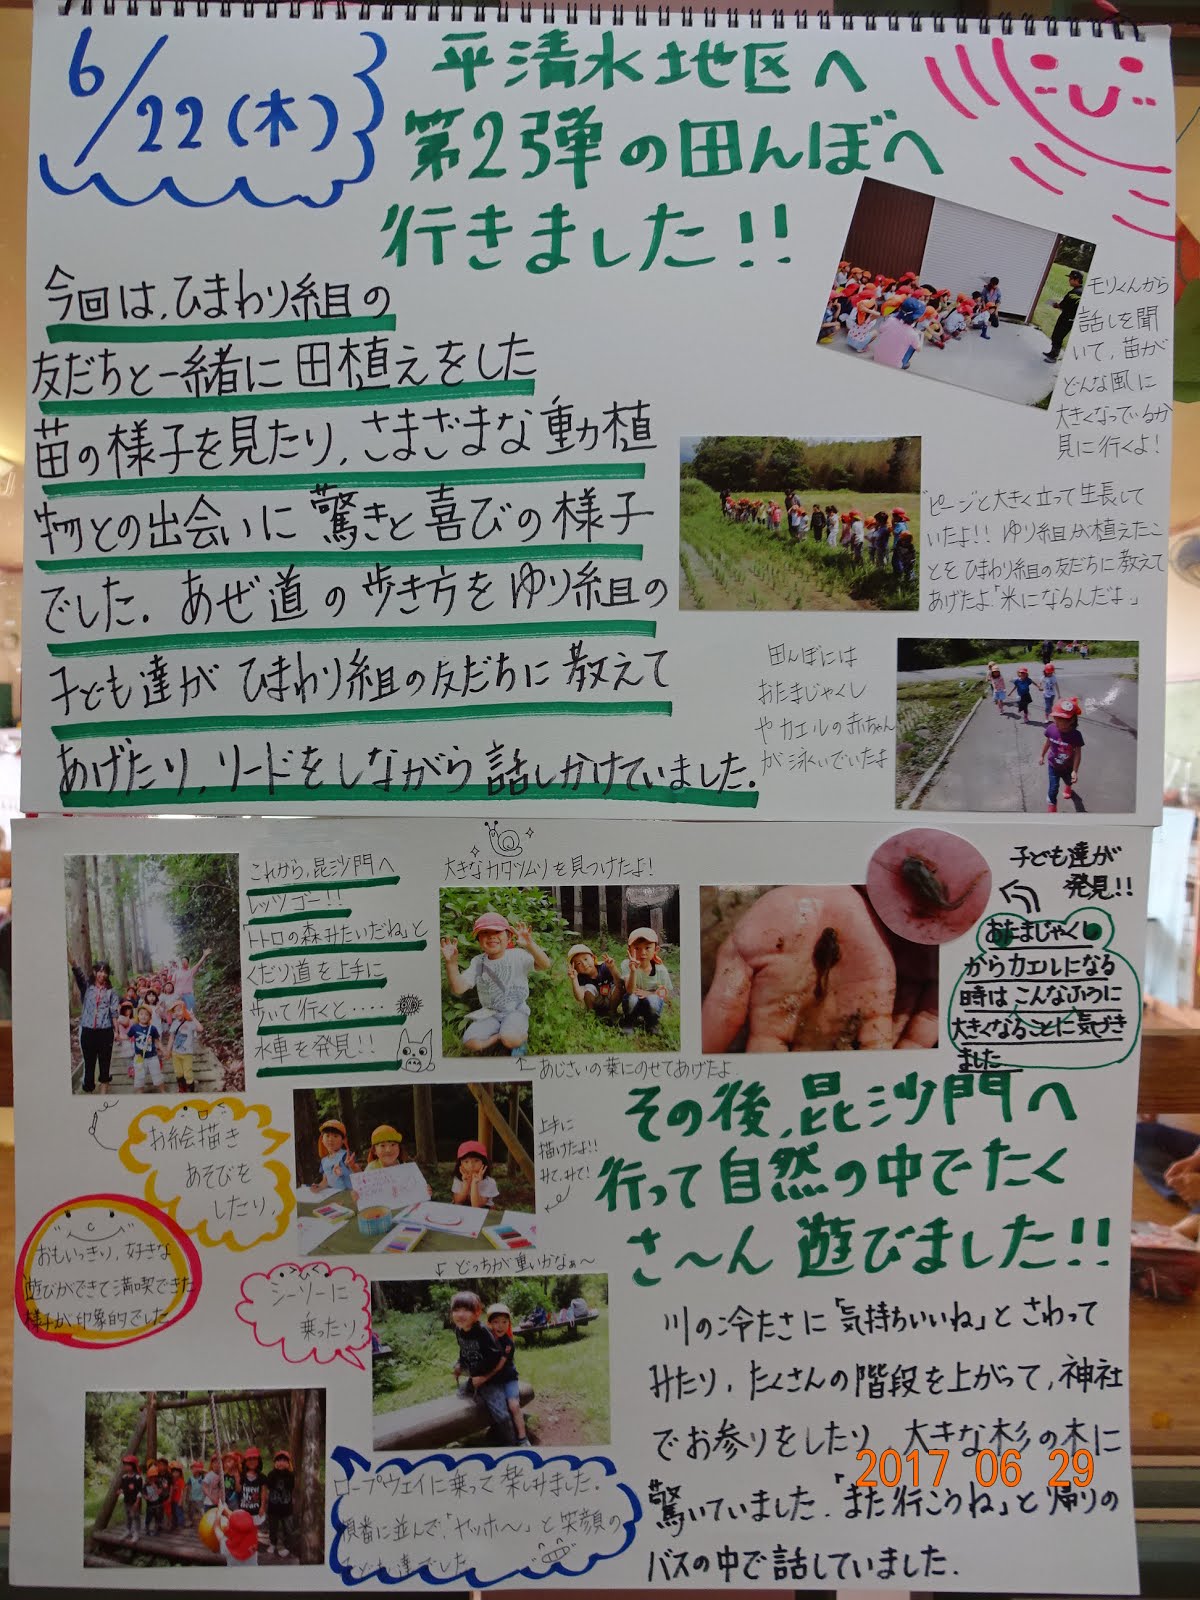 6/22(木)
平清水地区へ
第2弾の田んぼへ
行きました!!
今回は、ひまわり組の
友だちと一緒に田植えをした
苗の様子を見たり、さまざまな動植
物との出会いに驚きと喜びの様子
でした。あぜ道の歩き方をゆり組の
子ども達がひまわり組の友だちに教えて
あげたり、リードをしながら話しかけていました。
モリくんから
話しを聞
いて、苗が
どんな風に
大きくなっているか
見に行くよ!
ピーンと大きく立って生長して
いたよ!!ゆり組が植えたこ
とをひまわり組の友だちに教えて
あげたよ「米になるんだよ」
田んぼには
おたまじゃくし
やカエルの赤ちゃん
が泳いでいたよ
これから、昆沙門へ
レッツゴー!!
「トトロの森みたいだね」と
くだり道を上手に
歩いて行くと・・・・
水車を発見!!
大きなカタツムリを見つけたよ!
←あじさいの葉にのせてあげたよ
子ども達が
発見!!
おたまじゃくし
からカエルになる
時はこんなふうに
大きくなることに気づき
ました
お絵描き
あそびを
したり、
上手に
描けたよ!!
みて、みて!
おもいっきり、好きな
遊びができて満喫できた
様子が印象的でした
シーソーに
乗ったり、
どっちが重いかなぁ〜
ロープウェイに乗って楽しみました。
順番に並んで、「ヤッホ〜」と笑顔の
子ども達でした
その後、昆沙門へ
行って自然の中でたく
さ〜ん遊びました!!
川の冷たさに「気持ちいいね」とさわって
みたり、たくさんの階段を上がって、神社
でお参りをしたり、大きな杉の木に
驚いていました。「また行こうね」と帰りの
バスの中で話していました。
2017 06 29